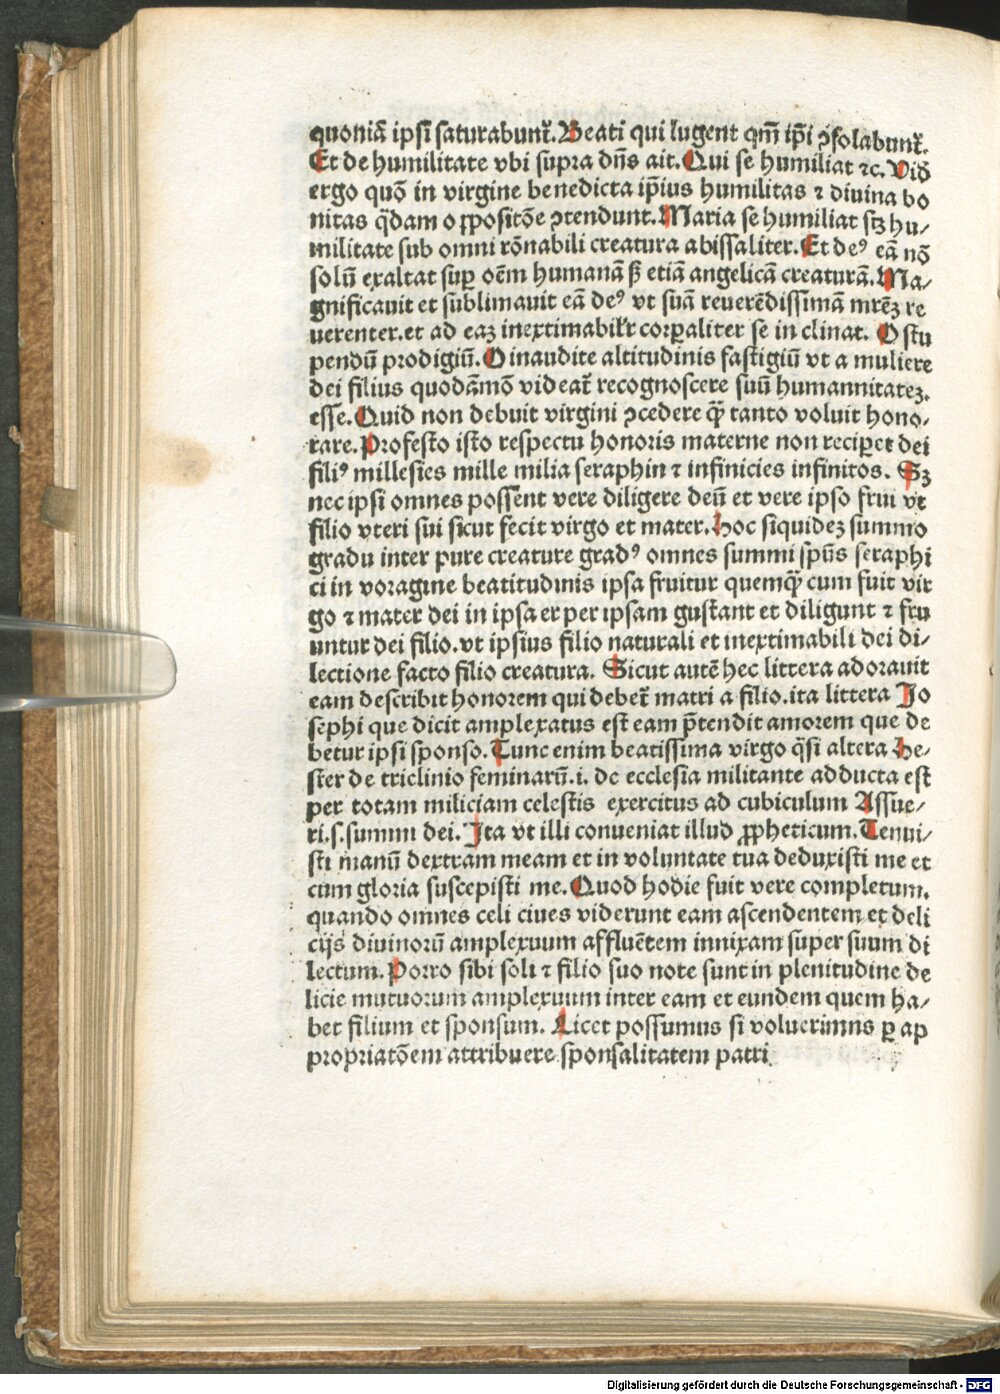 quoniā ipsi saturabunt̄. Beati qui lugent qm̄ ip̄i ↄsolabunt̄.
Et de humilitate vbi supra dn̄s ait. Qui se humiliat ⁊c. Vid̄
ergo quō in virgine benedicta ip̄ius humilitas ⁊ divina bo
nitas q̄dam oꝓpositōe ↄtendunt. Maria se humiliat sꝫ hu⸗
militate sub omni rōnabili creatura abissaliter. Et deꝰ eā nō
solū exaltat suꝑ oēm humanā sꝫ etiā angelicā creaturā. Ma⸗
gnificauit et sublimauit eā deꝰ vt suā reuerēdissimā mr̄eꝫ re
uerenter. et ad eaꝫ inextimabilr̄ corꝑaliter se in clinat. O stu
pendū prodigiū. O inaudite altitudinis fastigiū vt a muliere
dei filius quodāmō videat̄ recognoscere suū humannitateꝫ.
esse. Quid non debuit virgini ↄcedere q̄ tanto voluit hono⸗
rare. Profesto isto respectu honoris materne non reciꝑet dei
filiꝰ millesies mille milia seraphin ⁊ infinicies infinitos. Sꝫ
nec ipsi omnes possent vere diligere deū et vere ipso frui vt
filio vteri sui sicut fecit virgo et mater. Hoc siquideꝫ summo
gradu inter pure creature gradꝰ omnes summi sp̄us seraphi
ci in voragine beatitudinis ipsa fruitur quemq̄ cum fuit vir
go ⁊ mater dei in ipsa er per ipsam gustant et diligunt ⁊ fru
untur dei filio. vt ipsius filio naturali et inextimabili dei di⸗
lectione facto filio creatura. Sicut autē hec littera adorauit
eam describit honorem qui debet̄ matri a filio. ita littera Jo
sephi que dicit amplexatus est eam p̄tendit amorem que de
betur ipsi sponso. Tunc enim beatissima virgo q̄si altera He⸗
ster de triclinio feminarū .i. de ecclesia militante adducta est
per totam miliciam celestis exercitus ad cubiculum Assue⸗
ri .s. summi dei. Ita vt illi conueniat illud ꝓpheticum. Tenui⸗
sti manū dextram meam et in voluntate tua deduxisti me et
cum gloria suscepisti me. Quod hodie fuit vere completum.
quando omnes celi ciues viderunt eam ascendentem et deli
cijs diuinorū amplexuum affluētem innixam super suum di
lectum. Porro sibi soli ⁊ filio suo note sunt in plenitudine de
licie mutuorum amplexuum inter eam et eundem quem ha⸗
bet filium et sponsum. Licet possumus si voluerimns ꝑ ap
propriatōem attribuere sponsalitatem patri
Digitalisierung gefördert durch die Deutsche Forschungsgemeinschaft - DFG